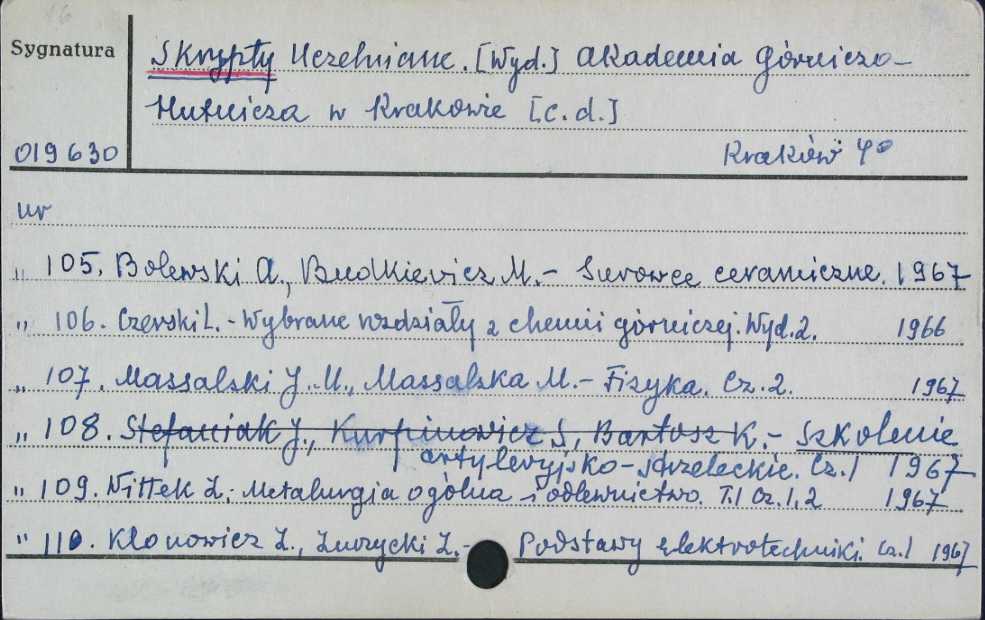 16
Sygnatura
Skrypty Uczelniane. [Wyd.] Akademia Górniczo-
Hutnicza w Krakowie [c.d.]
019630
Kraków 4°
nr
„ 105. Bolewski A., Budkiewicz M. - Surowce ceramiczne. 1967
„ 106. Czerski L. - Wybrane rozdziały z chemii górniczej. Wyd. 2. 1966
„ 107. Massalski J. M., Massalska M. - Fizyka. Cz. 2. 1967
„ 108. Stefaniak J., Kurpinowicz S, Bartosz K. - Szkolenie
artyleryjsko-strzeleckie. Cz. 1 1967
„ 109. Nittek Z. Metalurgia ogólna i odlewnictwo. T. 1 Cz. 1, 2 1967
„ 110. Klonowicz Z., Zurzycki Z. - Podstawy elektrotechniki. Cz. 1 1967